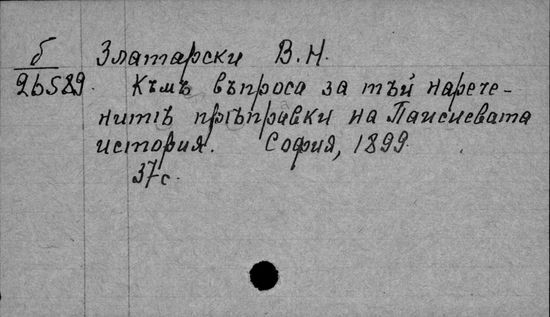 б Златарски В.Н.
26589. Къмъ въпроса за тъй нарече-
нитѣ прѣправки на Паисиевата
история. София, 1899.
37с.